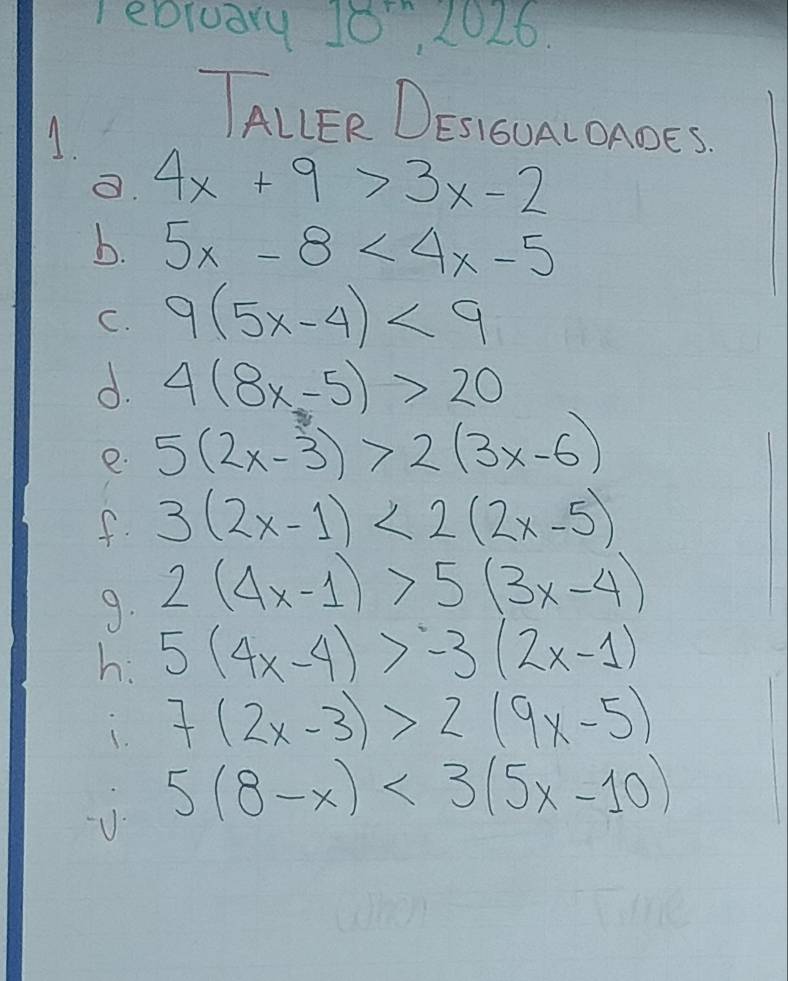 February 18th, 2026.
TALLER DESIGUALDADES.
1.
a. 4x + 9 > 3x - 2
b. 5x - 8 < 4x - 5
c. 9(5x-4) < 9
d. 4(8x-5) > 20
e. 5(2x-3) > 2(3x-6)
f. 3(2x-1) < 2(2x-5)
g. 2(4x-1) > 5(3x-4)
h. 5(4x-4) > -3(2x-1)
i. 7(2x-3) > 2(9x-5)
j. 5(8-x) < 3(5x-10)
When Time